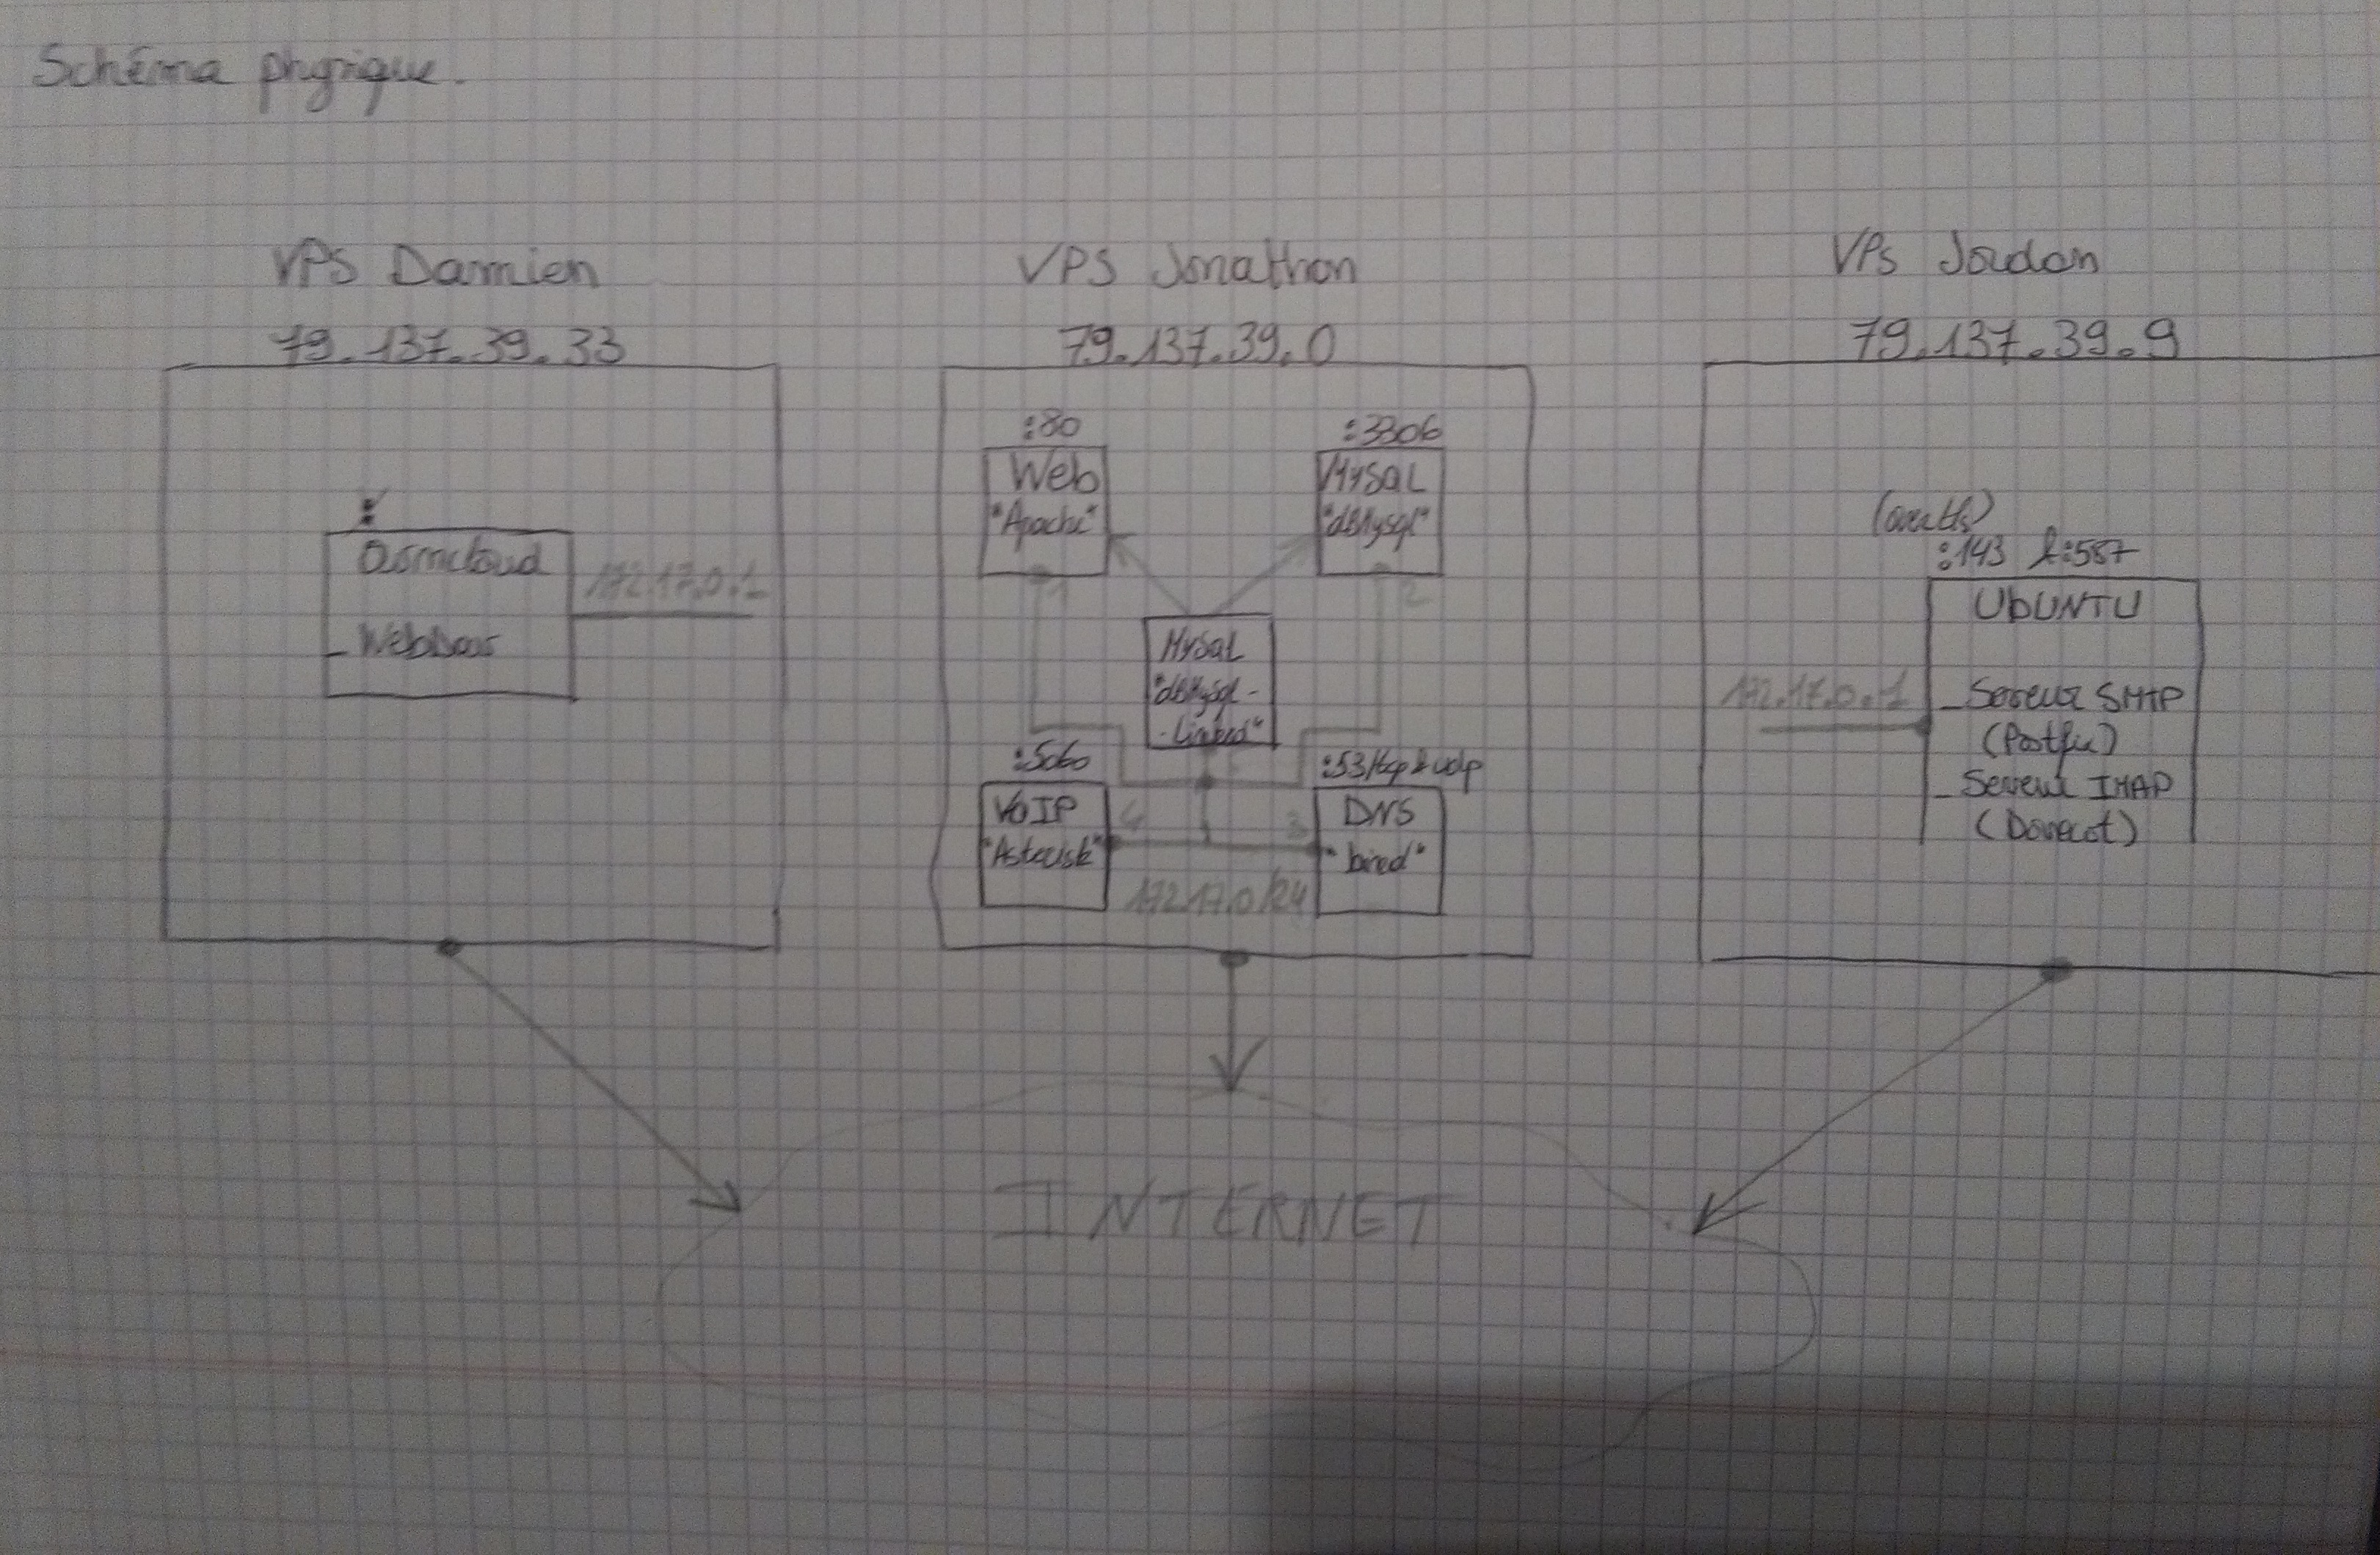 Schéma physique.
VPS Damien
79.137.39.33
:
172.17.0.1
VPS Jonathan
79.137.39.0
:80
Web
"Apache"
1
:3306
MySQL
"dbMysql"
2
MySQL
"dbMysql-
-linked"
:5060
VoIP
"Asterisk"
4
:53/tcp & udp
DNS
"bind"
3
172.17.0/24
VPS Jordan
79.137.39.9
:143 & :587
UBUNTU
172.17.0.1
- Serveur SMTP
(Postfix)
- Serveur IMAP
(Dovecot)
INTERNET